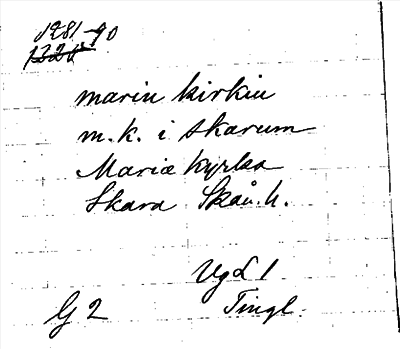 1281-90
1326
marin kirkiu
m.k. i skarum
Mariæ kyrka
Skara Skån. h.
VgL 1
G 2 Tingl.